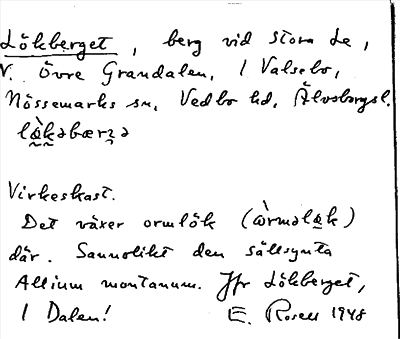 Lökberget, berg vid Stora Le,
V. Övre Grandalen, 1 Valsebo,
Nössemarks sn, Vedbo hd, Älvsborgsl.
Virkeskast.
Det växer ormlök
där. Sannolikt den sällsynta
Allium montanum. Jfr Lökberget,
1 Dalen! E. Rosell 1948